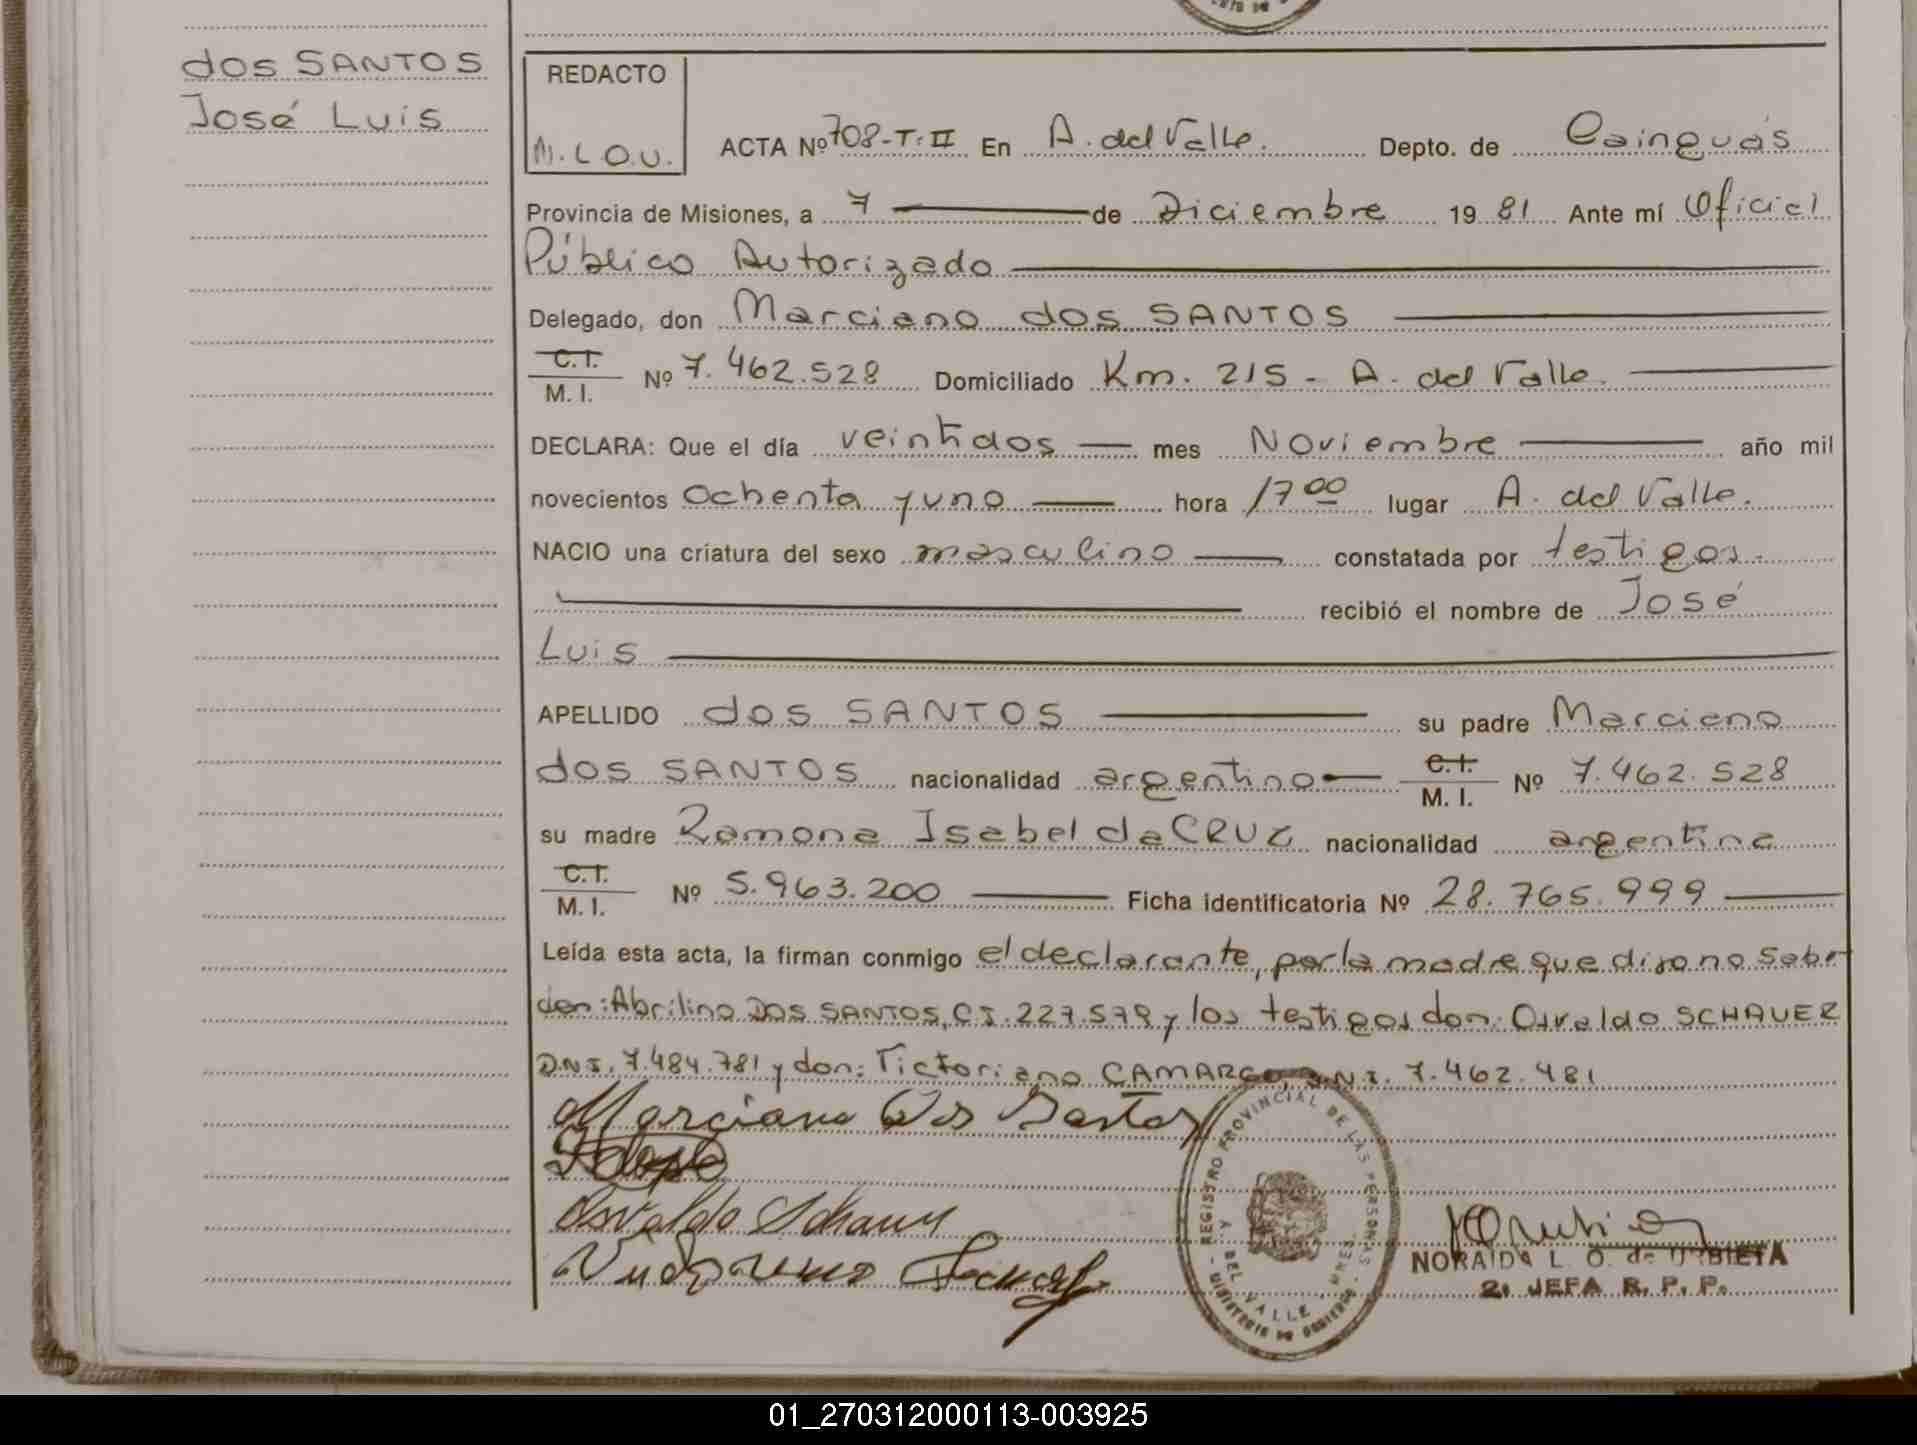 dos SANTOS
José Luis
REDACTO
M.L.O.U.
ACTA Nº 708-T:II En A. del Valle. Depto. de Cainguás
Provincia de Misiones, a 7 de Diciembre 19 81 Ante mí Oficial
Público Autorizado
Delegado, don Marciano dos SANTOS
C.I.
M. I. Nº 7.462.528 Domiciliado Km. 215 - A. del Valle.
DECLARA: Que el día veintidos mes Noviembre año mil
novecientos ochenta y uno hora 17 00 lugar A. del Valle.
NACIO una criatura del sexo masculino constatada por testigos.
recibió el nombre de José
Luis
APELLIDO dos SANTOS su padre Marciano
dos SANTOS nacionalidad argentino C.I. M. I. Nº 7.462.528
su madre Ramona Isabel da CRUZ nacionalidad argentina
C.I.
M. I. Nº 5.963.200 Ficha identificatoria Nº 28.765.999
Leída esta acta, la firman conmigo el declarante, por la madre que dijo no saber
don: Abrilino DOS SANTOS, C.I. 227.579 y los testigos don: Osvaldo SCHAUER
D.N.I. 7.484.781 y don: Victoriano CAMARGO, D.N.I. 7.462.481
Marciano Dos Santos
Osvaldo Schauer
REGISTRO PROVINCIAL DE LAS PERSONAS
DEL VALLE
MINISTERIO DE GOBIERNO
NORAIDA L. O. de URBIETA
2. JEFA R. P. P.
01_270312000113-003925